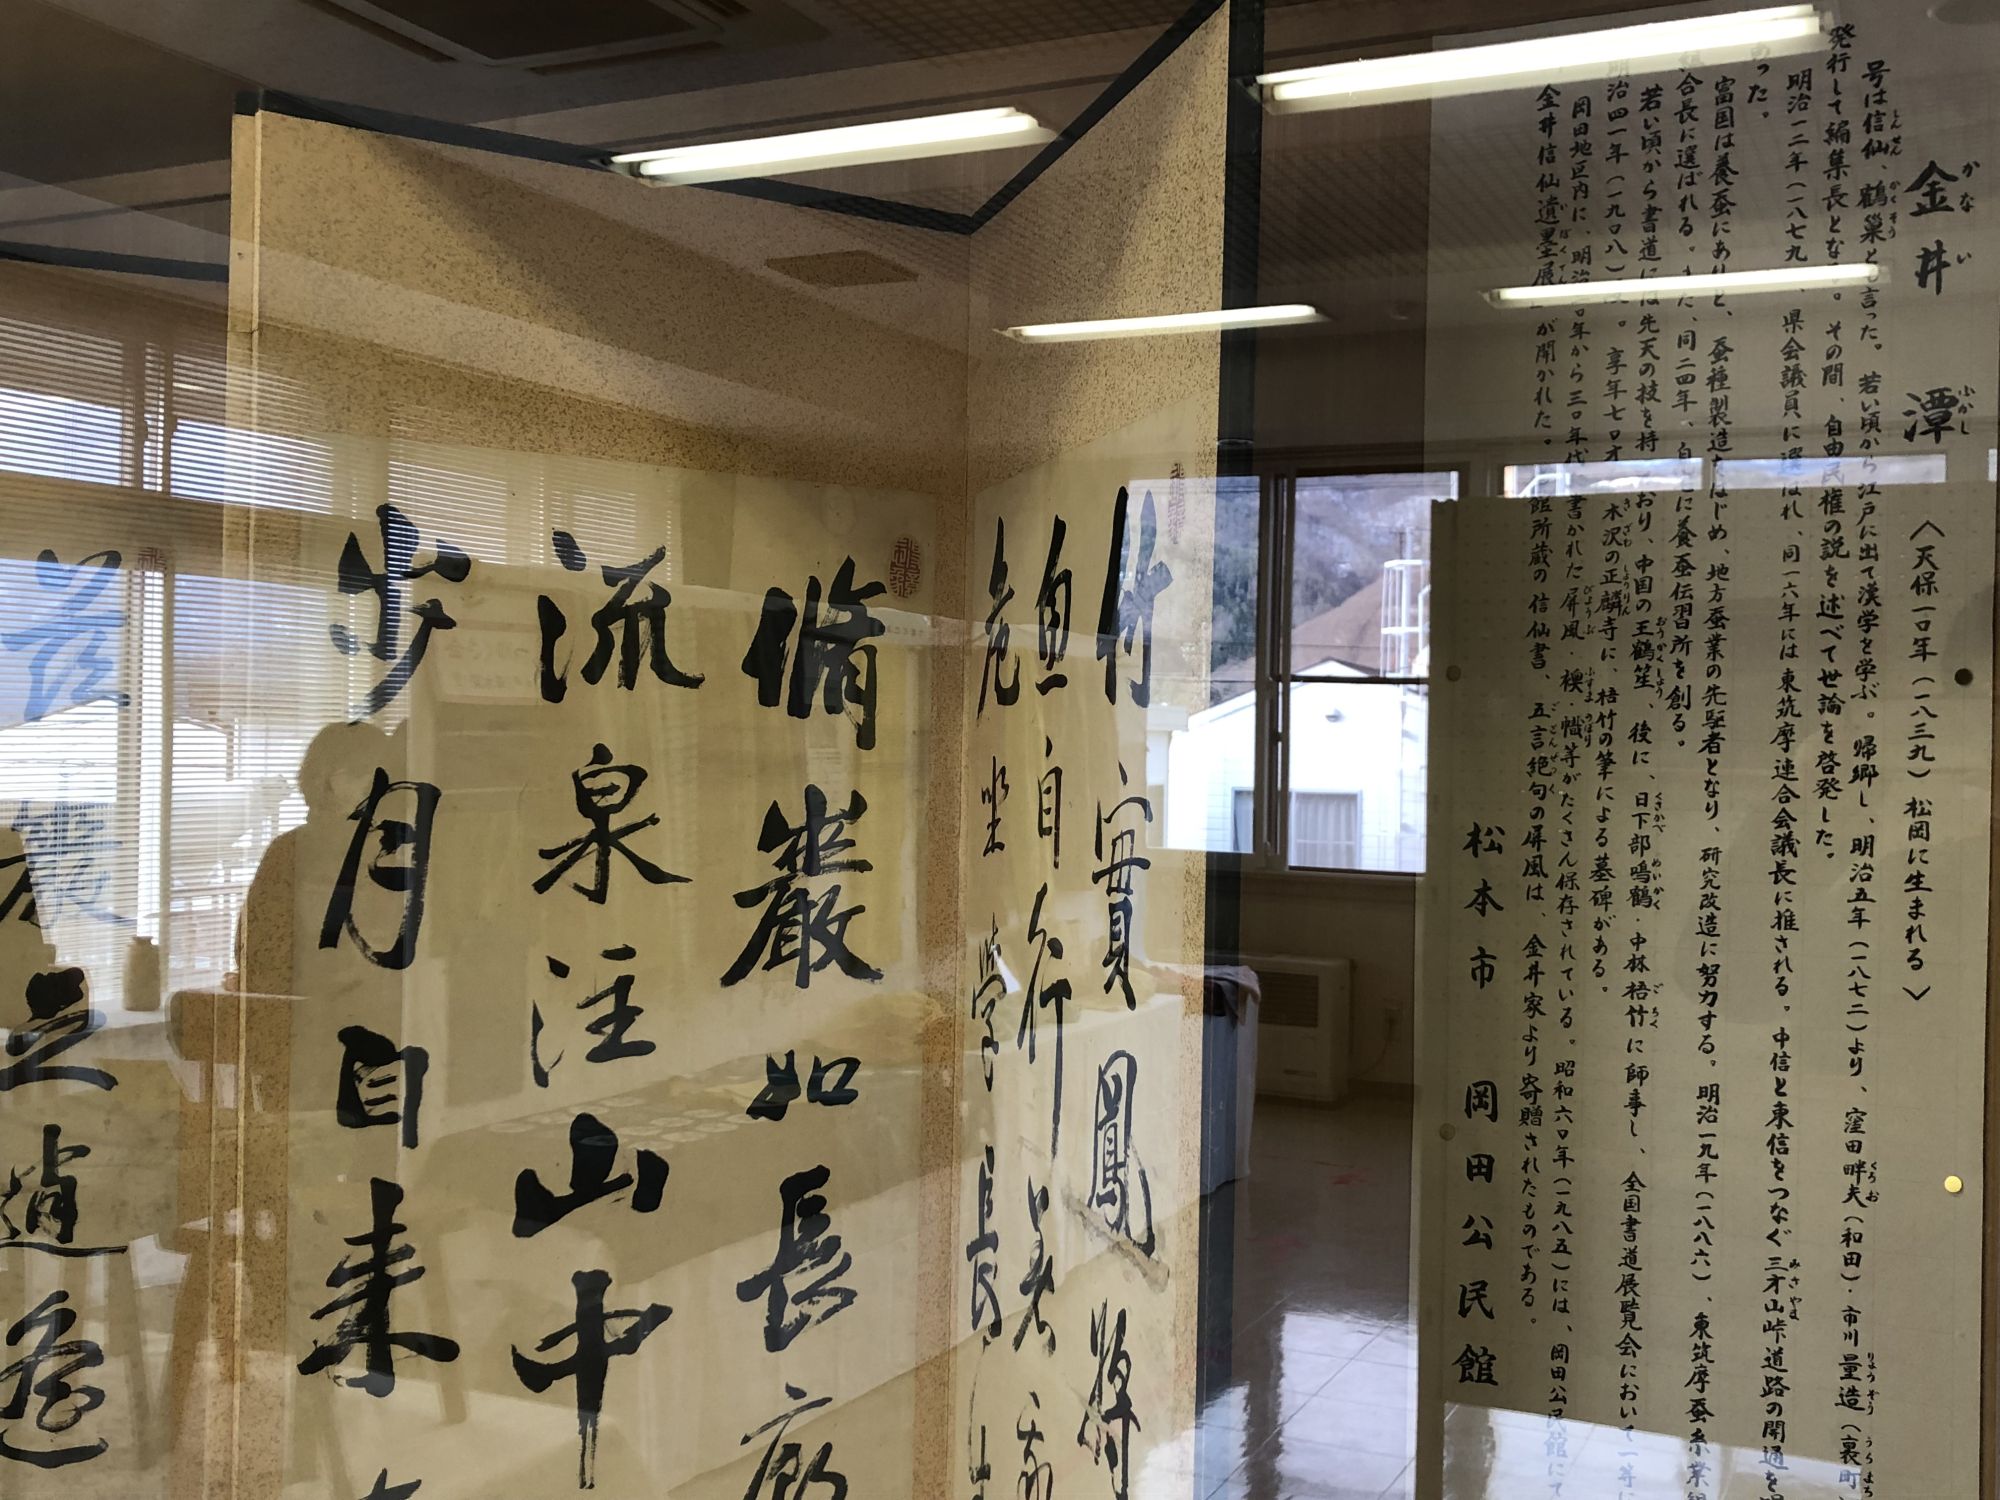 金井潭
〈天保一〇年(一八三九)松岡に生まれる〉
号は信仙、鶴巣とも言った。若い頃から江戸に出て漢学を学ぶ。帰郷し、明治五年(一八七二)より、窪田畔夫(和田)・市川量造(裏町
発行して編集長となる。その間、自由民権の説を述べて世論を啓発した。
明治一二年(一八七九 県会議員に選ばれ、同一六年には東筑摩連合会議長に推される。中信と東信をつなぐ三才山峠道路の開通を
あった。
富国は養蚕にありと、蚕種製造をはじめ、地方蚕業の先駆者となり、研究改造に努力する。明治一九年(一八八六)、東筑摩蚕糸業組
合長に選ばれる。また、同二四年、自 に養蚕伝習所を創る。
若い頃から書道には先天の技を持 おり、中国の王鶴笙、後に、日下部鳴鶴・中林梧竹に師事し、全国書道展覧会において一等に
明治四一年(一九〇八) 。享年七〇才 木沢の正麟寺に、梧竹の筆による墓碑がある。
岡田地区内に、明治 〇年から三〇年代 書かれた屏風・襖・幟等がたくさん保存されている。昭和六〇年(一九八五)には、岡田公民館にて
金井信仙遺墨展 が開かれた。 館所蔵の信仙書、五言絶句の屏風は、金井家より寄贈されたものである。
松本市 岡田公民館
竹實鳳將
自行
危坐 學長
脩巖如長廊
流泉注山中
歩月自来
足逍遙